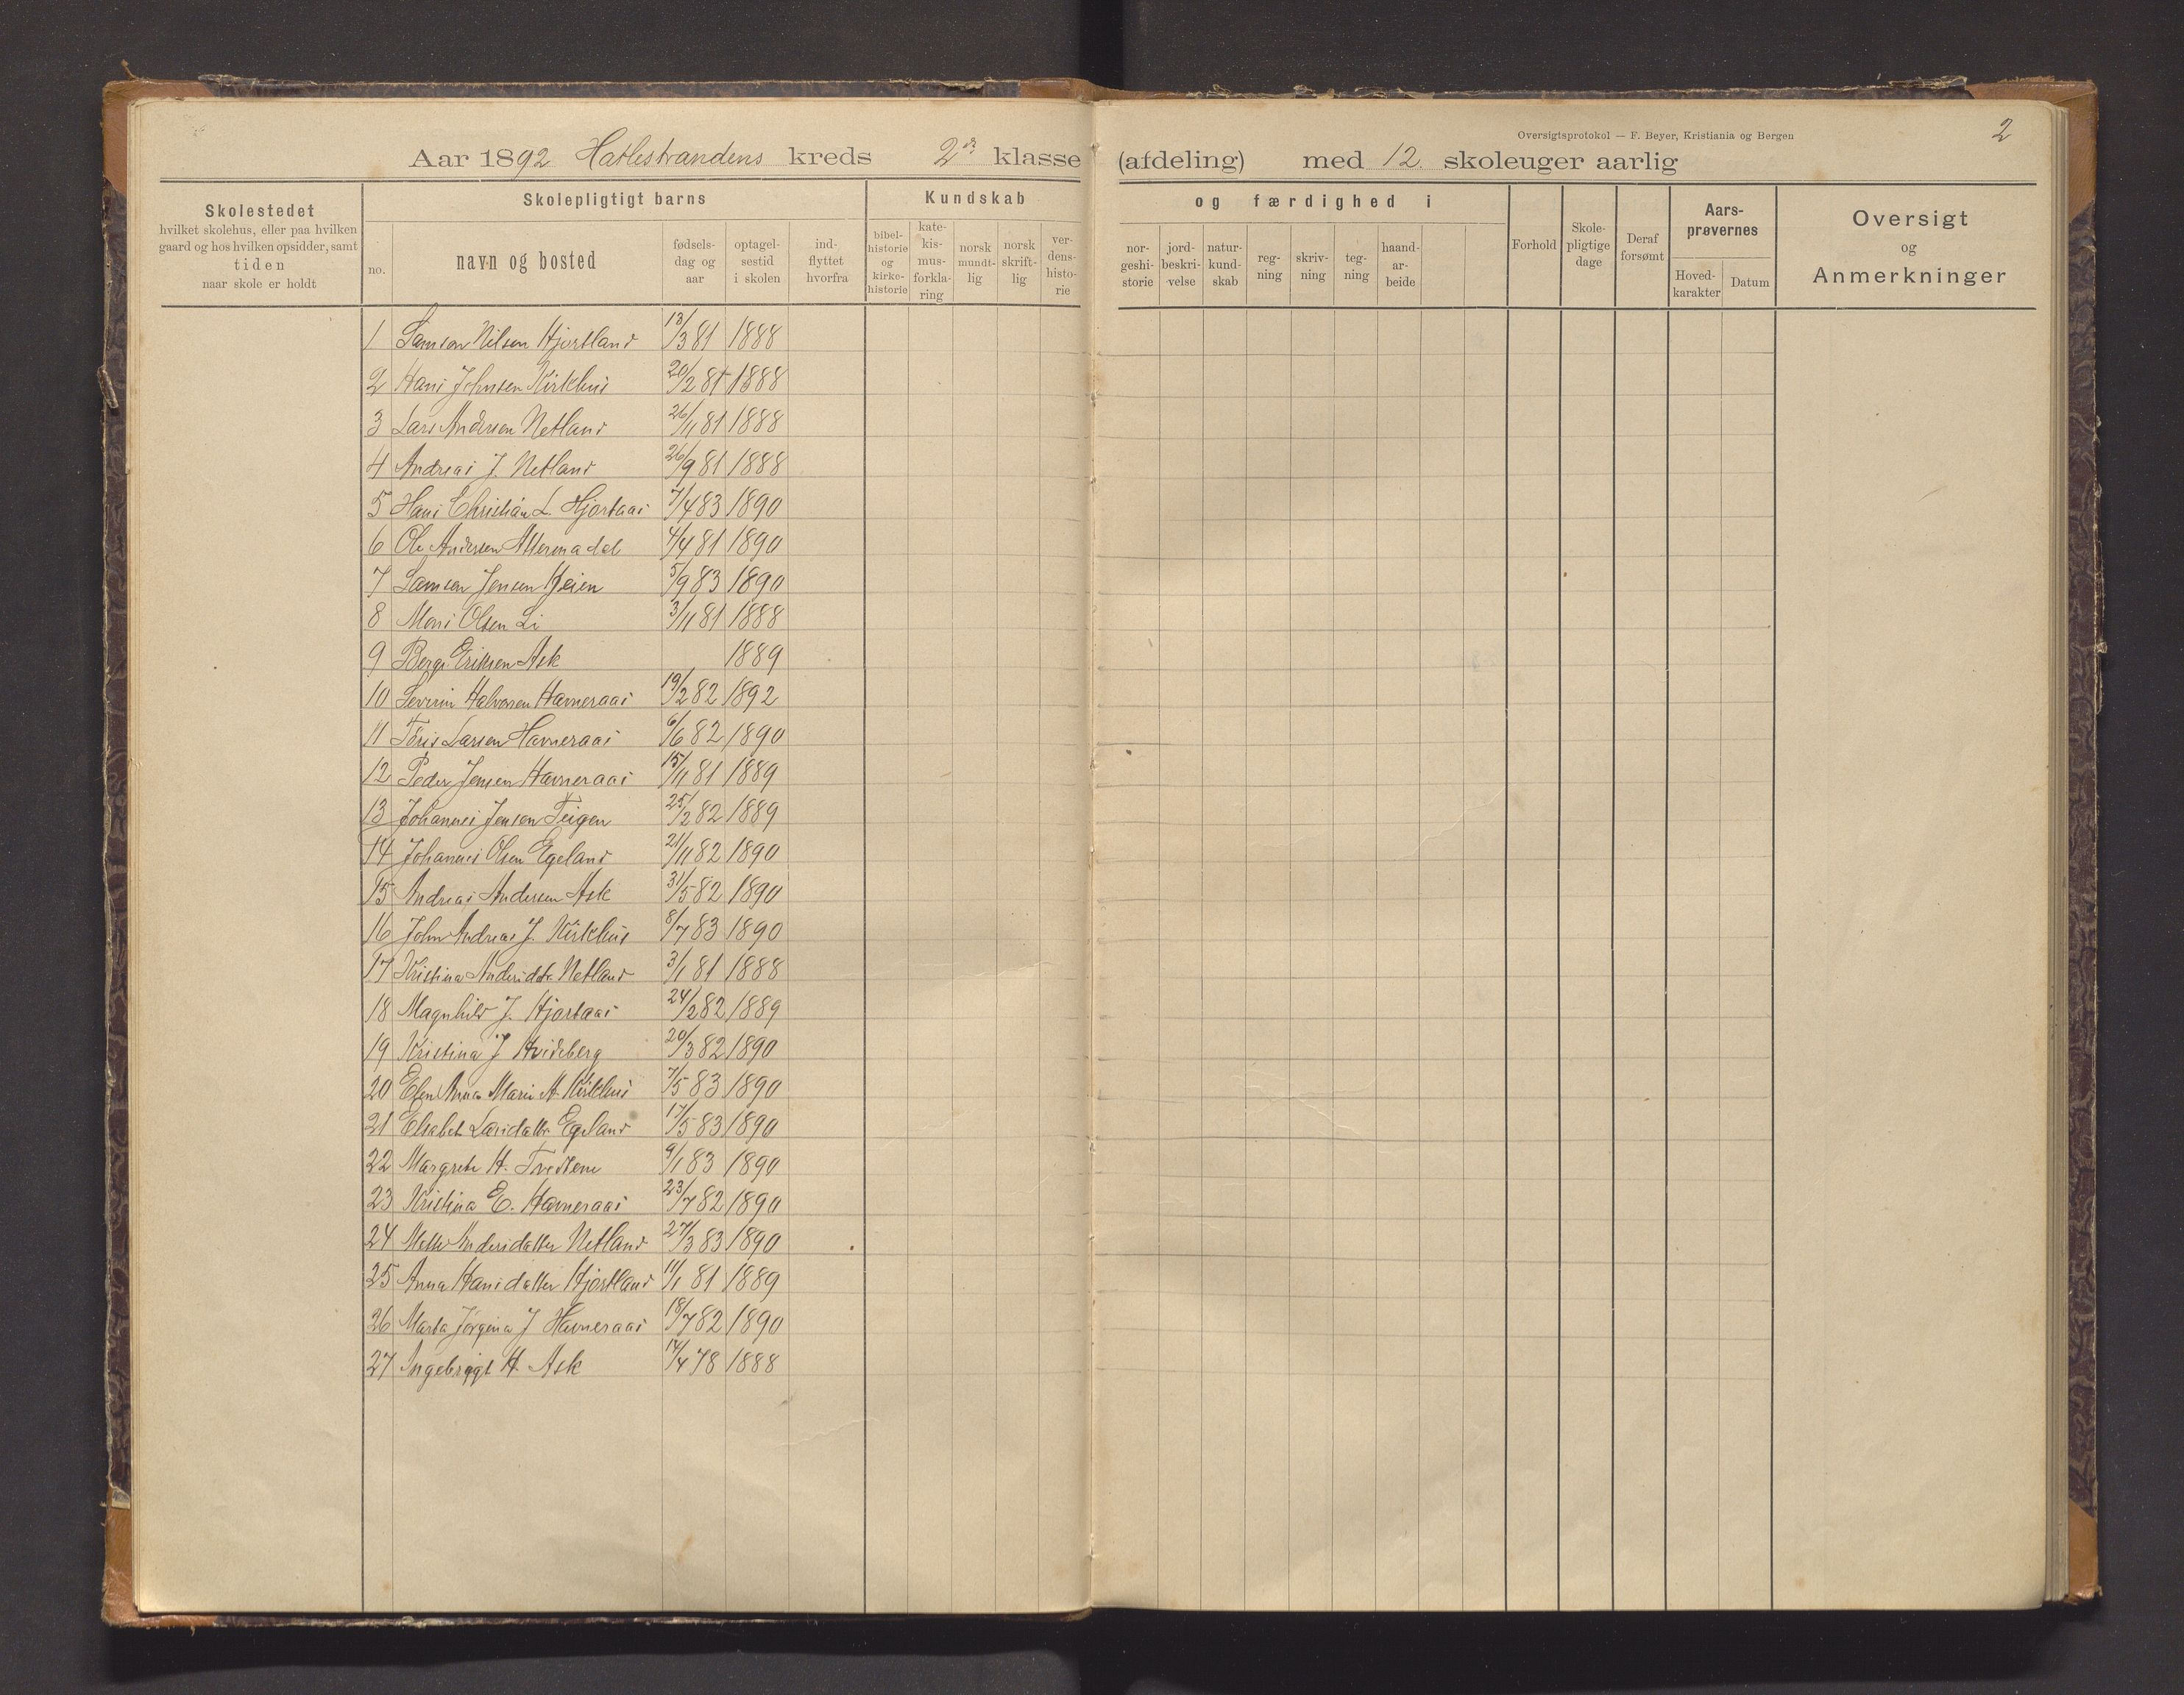 Oversigtsprotokol — F. Beyer, Kristiania og Bergen
2
Aar 1892 Hatlestrandens kreds 2de klasse (afdeling) med 12. skoleuger aarlig
Skolestedet
hvilket skolehus, eller paa hvilken
gaard og hos hvilken opsidder, samt
tiden
naar skole er holdt
Skolepligtigt barns
no.
navn og bosted
fødsels-
dag og
aar
optagel-
sestid
i skolen
ind-
flyttet
hvorfra
Kundskab
bibel-
historie
og
kirke-
historie
kate-
kis-
mus-
forkla-
ring
norsk
mundt-
lig
norsk
skrift-
lig
ver-
dens-
histo-
rie
og færdighed i
nor-
geshi-
storie
jord-
beskri-
velse
natur-
kund-
skab
reg-
ning
skriv-
ning
teg-
ning
haand-
ar-
beide
Forhold
Skole-
pligtige
dage
Deraf
forsømt
Aars-
prøvernes
Hoved-
karakter
Datum
Oversigt
og
Anmerkninger
1 Samson Nilsen Hjortland 13/3 81 1888
2 Hans Johnsen Kirkhus 20/2 81 1888
3 Lars Andersen Netland 26/11 81 1888
4 Andreas J. Netland 26/9 81 1888
5 Hans Christian L. Hjortaas 7/4 83 1890
6 Ole Andersen 4/4 81 1890
7 Samson Jensen Heien 5/9 83 1890
8 Mons Olsen Li 3/11 81 1888
9 Berge Eriksen Ask 1889
10 Severin Halvorsen Havneraas 19/2 82 1892
11 Tøris Larsen Havneraas 6/6 82 1890
12 Peder Jensen Havneraas 15/11 81 1889
13 Johannes Jensen Teigen 25/2 82 1889
14 Johannes Olsen Egeland 21/11 82 1890
15 Andreas Andersen Ask 31/5 82 1890
16 John Andreas J. Kirkhus 8/7 83 1890
17 Kristina Andersdtr Netland 3/1 81 1888
18 Magnhild J. Hjortaas 24/2 82 1889
19 Kristina J Hvideberg 20/3 82 1890
20 Elen Anna Marie A. Kirkhus 7/5 83 1890
21 Elsabet Larsdatter Egeland 17/5 83 1890
22 Margrete H. Tveitene 9/1 83 1890
23 Kristina E. Havneraas 23/7 82 1890
24 Mette Andersdatter Netland 27/3 83 1890
25 Anna Hansdatter Hjortland 11/1 81 1889
26 Marta Jørgina J Havneraas 18/7 82 1890
27 Ingebrigt H. Ask 17/4 78 1888